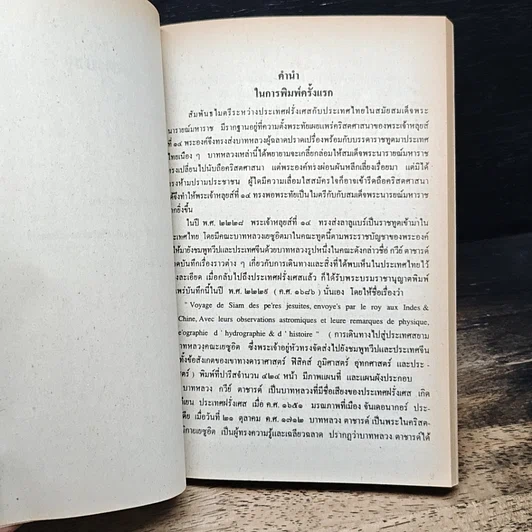 คำนำ
ในการพิมพ์ครั้งแรก
สัมพันธไมตรีระหว่างประเทศฝรั่งเศสกับประเทศไทยในสมัยสมเด็จพระ
นารายณ์มหาราช มีรากฐานอยู่ที่ความตั้งพระทัยเผยแพร่คริสตศาสนาของพระเจ้าหลุยส์
ที่ ๑๔ พระองค์จึงทรงส่งบาทหลวงผู้ฉลาดปราดเปรื่องพร้อมกับบรรดาราชทูตมาประเทศ
ไทยเนือง ๆ บาทหลวงเหล่านี้ได้พยายามจะเกลี้ยกล่อมให้สมเด็จพระนารายณ์มหาราช
ทรงเปลี่ยนไปนับถือคริสตศาสนา แต่พระองค์ทรงผ่อนผันหลีกเลี่ยงเรื่อยมา แต่มิได้
ทรงห้ามปรามประชาชน ผู้ใดมีความเลื่อมใสสมัครใจก็อาจเข้ารีตถือคริสตศาสนา
ได้จึงทำให้พระเจ้าหลุยส์ที่ ๑๔ ทรงพอพระทัยเป็นไมตรีกับกับสมเด็จพระนารายณ์มหาราช
มากยิ่งขึ้น
ในปี พ.ศ. ๒๒๒๘ พระเจ้าหลุยส์ที่ ๑๔ ทรงส่งลาลูแบร์เป็นราชทูตเข้ามาใน
ประเทศไทย โดยมีคณะบาทหลวงเยซูอิตมาในคณะทูตนี้ตามพระราชบัญชาของพระองค์
ให้มายังชมพูทวีปและประเทศจีนด้วยบาทหลวงรูปหนึ่งในคณะดังกล่าวชื่อ กวีย์ ตาชารด์
จดบันทึกเรื่องราวต่าง ๆ เกี่ยวกับการเดินทางและสิ่งที่ได้พบเห็นในประเทศไทยไว้
อย่างละเอียด เมื่อกลับไปถึงประเทศฝรั่งเศสแล้ว ก็ได้รับพระบรมราชานุญาตพิมพ์
เผยแพร่บันทึกนี้ในปี พ.ศ. ๒๒๒๙ (ค.ศ. ๑๖๘๖) นั่นเอง โดยให้ชื่อเรื่องว่า
" Voyage de Siam des pe'res jesuites, envoye's par le roy aux Indes &
Chine, Avec leurs observations astromiques et leure remarques de physique,
ge'ographie d ' hydrographie & d ' histoire " (การเดินทางไปสู่ประเทศสยาม
บาทหลวงคณะเยซูอิต ซึ่งพระเจ้าอยู่หัวทรงจัดส่งไปยังชมพูทวีปและประเทศจีน
ทั้งข้อสังเกตของเขาทางดาราศาสตร์ ฟิสิคส์ ภูมิศาสตร์ อุทกศาสตร์ และประ-
ศาสตร์) พิมพ์ที่ปารีสจำนวน ๔๒๔ หน้า มีภาพแผนที่ และแผนผังประกอบ
บาทหลวง กวีย์ ตาชารด์ เป็นบาทหลวงที่มีชื่อเสียงของประเทศฝรั่งเศส เกิด
ประเทศฝรั่งเศส เมื่อ ค.ศ. ๑๖๕๑ มรณภาพที่เมือง จันเดอนากอร์ ประ-
เมื่อวันที่ ๒๑ ตุลาคม ค.ศ. ๑๗๑๒ บาทหลวง ตาชารด์ เป็นพระในคริสต-
นิกายเยซูอิต เป็นผู้ทรงความรู้และเฉลียวฉลาด ปรากฏว่าบาทหลวง ตาชารด์ได้